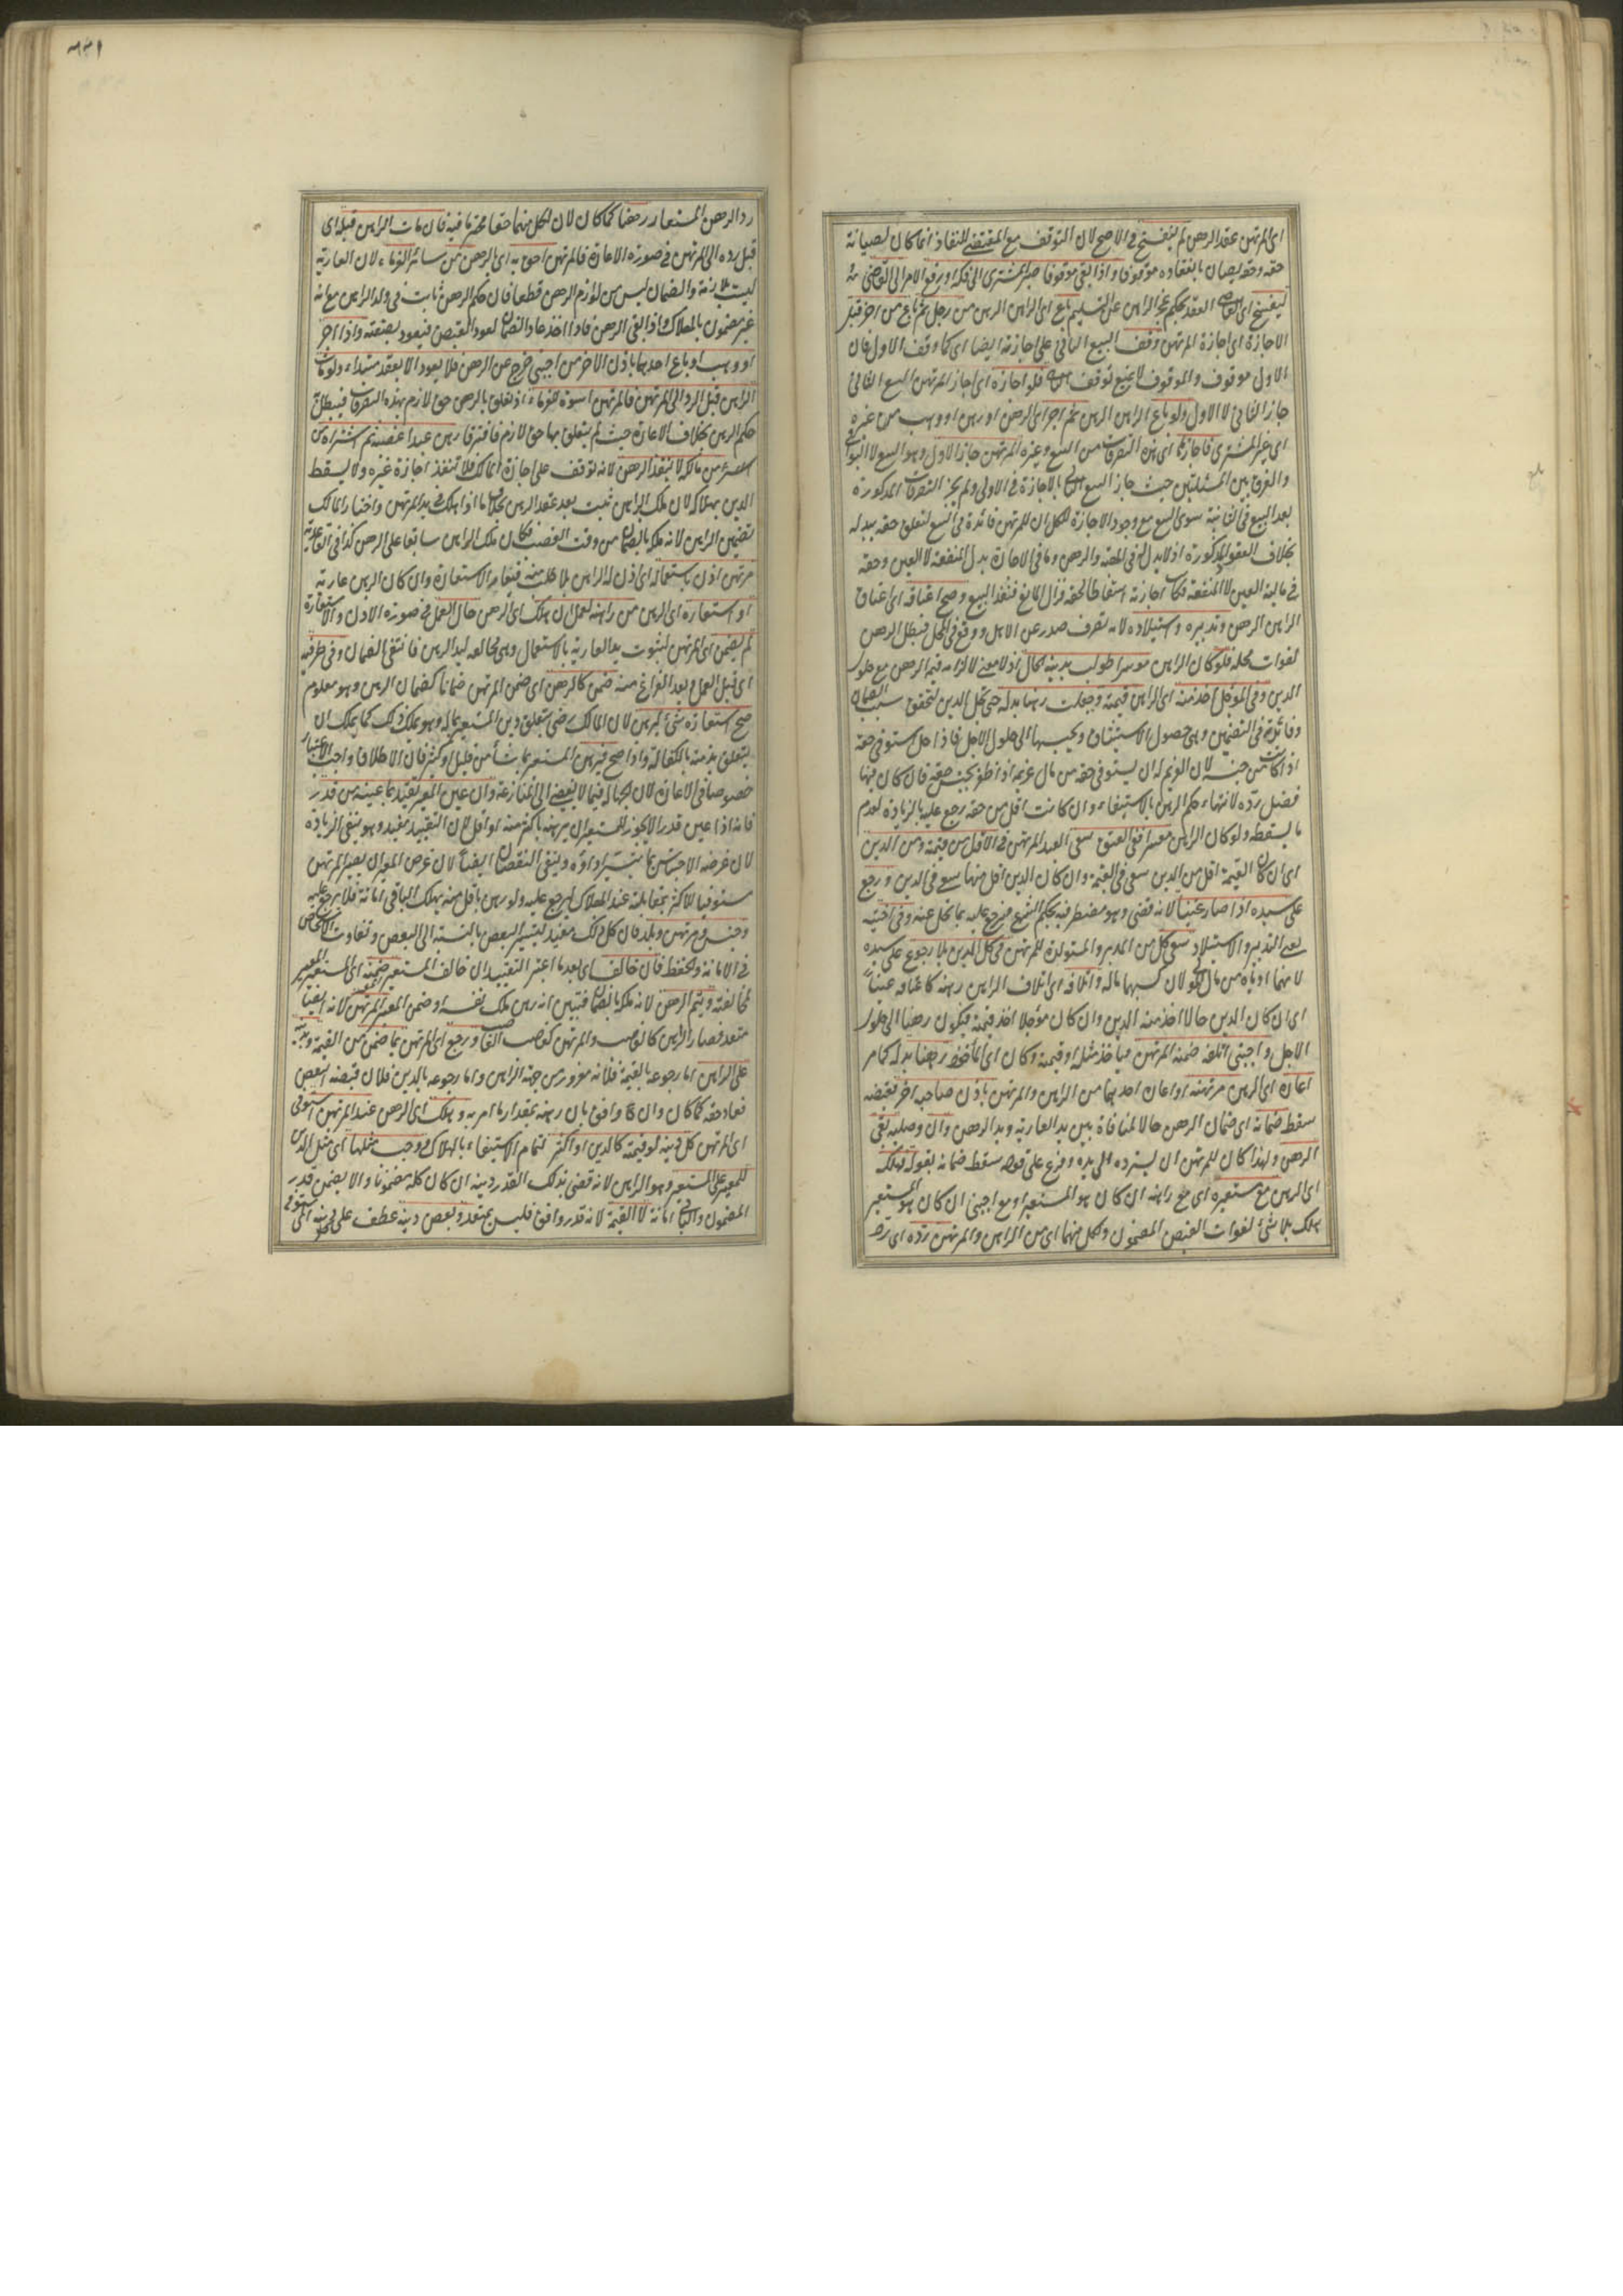 اى المرتهن عقد الرهن لم ينفسخ فى الاصح لان التوقف مع المقتضى للنفاذ انما كان لصيانة
حقه وحقه يصان بانعقاده موقوفا واذا بقى موقوفا صبر المشترى الى فكه او رفع الامر الى القاضى
ليفسخ اى القاضى العقد بحكم عجز الراهن عن التسليم باع اى الراهن الرهن من رجل ثم باع من اخر قبل
الاجازة اى اجازة المرتهن وقف البيع الثانى على اجازته ايضا اى كما وقف الاول فان
الاول موقوف والموقوف لا يمنع توقف الثانى فلو اجازه اى اجاز المرتهن البيع الثانى
جاز الثانى لا الاول ولو باع الراهن الرهن ثم اجر اى الرهن او رهن او وهب من غيره
اى غير المشترى فاجازها اى هذه التصرفات من البيع وغيره المرتهن جاز الاول وهو البيع لا البواقى
والفرق بين المسئلتين حيث جاز البيع الثانى بالاجازة فى الاولى ولم يجز التصرفات المذكورة
بعد البيع فى الثانية سوى البيع مع وجود الاجازة للكل ان للمرتهن فائدة فى البيع لتعلق حقه ببدله
بخلاف العقود المذكورة اذ لا بدل فى الهبة والرهن وما فى الاجارة بدل المنفعة لا العين وحقه
فى مالية العين لا المنفعة فكان اجازته اسقاطا لحقه فزال المانع فنفذ البيع وصح اعتاقه اى اعتاق
الراهن الرهن وتدبيره واستيلاده لانه تصرف صدر عن الاهل ووقع فى المحل فبطل الرهن
لفوات محله فلو كان الراهن موسرا طولب بدينه الحال اذ لا معنى لالزامه قيمة الرهن مع حلول
الدين وفى المؤجل اخذ منه اى الراهن قيمته وجعلت رهنا بدله حتى يحل الدين لتحقق سبب الضمان
وفائدة فى التضمين وهى حصول الاستيثاق ويحبسها الى حلول الاجل فاذا حل استوفى حقه
اذا كانت من جنسه لان الغريم له ان يستوفى حقه من مال غريمه اذا ظفر بجنس حقه فان كان فيها
فضل رده لانتهاء حكم الرهن بالاستيفاء وان كانت اقل من حقه رجع عليه بالزيادة لعدم
ما يسقطه ولو كان الراهن معسرا ففى العتق سعى العبد المرتهن فى الاقل من قيمته ومن الدين
اى ان كان القيمة اقل من الدين سعى فى القيمة وان كان الدين اقل منها سعى فى الدين ورجع
على سيده اذا صار غنيا لانه قضى وهو مضطر فيه بحكم الشرع فيرجع عليه بما تحمل عنه وفى اختيه
يعنى التدبير والاستيلاد سعى كل من المدبر والمستولدة للمرتهن فى كل الدين بلا رجوع على سيده
لانهما ادياه من مال المولى لان كسبهما ماله واتلافه اى اتلاف الراهن رهنه كاعتاقه غنيا
اى ان كان الدين حالا اخذ منه الدين وان كان مؤجلا اخذ قيمته فيكون رهنا الى حلول
الاجل واجنبى اتلفه ضمنه المرتهن فياخذ مثله او قيمته وكان اى المأخوذ رهنا بدله كما مر
اعاره اى الرهن مرتهنه او اعاره احدهما من الراهن والمرتهن باذن صاحبه اخر فقبضه
سقط ضمانه اى ضمان الرهن حالا لمنافاة بين يد العارية ويد الرهن وان وصلية بقى
الرهن ولهذا كان للمرتهن ان يسترده الى يده وفرع على قوله سقط ضمانه بقوله فهلكه
اى الرهن مع مستعيره اى مع راهنه ان كان هو المستعير او مع اجنبى ان كان هو المستعير
هلك بلا شئ لفوات القبض المضمون ولكل منهما اى من الراهن والمرتهن رده اى رد
٦٣١
رد الرهن المستعار رهنا كما كان لان لكل منهما حقا محترما فيه فان مات الراهن قبله اى
قبل رده الى المرتهن فى صورة الاعارة فالمرتهن احق به اى الرهن من سائر الغرماء لان العارية
ليست بلازمة والضمان ليس من لوازم الرهن قطعا فان حكم الرهن ثابت فى ولد الراهن مع انه
غير مضمون بالهلاك واذا بقى الرهن فاذا اخذ عاد الضمان لعود القبض فيعود بصفته واذا اجر
او وهب او باع احدهما باذن الاخر من اجنبى خرج عن الرهن فلا يعود الا بعقد مبتداء ولو مات
الراهن قبل الرد الى المرتهن فالمرتهن اسوة للغرماء اذ تعلق بالرهن حق لازم بهذه التصرفات فيبطل
حكم الرهن بخلاف الاعارة حيث لم يتعلق بها حق لازم فافترقا رهن عبدا غصبه ثم اشتراه من
مالكه لا ينفذ الرهن لانه توقف على اجازة المالك فلا تنفذ اجازة غيره ولا يسقط
الدين بهلاكه لان ملك الراهن ثبت بعد عقد الرهن بخلاف ما اذا هلك فى يد المرتهن واختار المالك
تضمين الراهن لانه ملكه بالضمان من وقت الغصب فكان ملك الراهن سابقا على الرهن كذا فى القاعدية
مرتهن اذن باستعماله اى اذن له الراهن بلا طلب منه فيغاير الاستعارة وان كان الرهن عارية
او استعاره اى الرهن من راهنه لعمل ان هلك اى الرهن حال العمل فى صورة الاذن والاستعارة
لم يضمن اى المرتهن لثبوت يد العارية بالاستعمال وهى مخالفه ليد الرهن فانتفى الضمان وفى طرفيه
اى قبل العمل وبعد الفراغ منه ضمن كالرهن اى ضمن المرتهن ضمانا كضمان الرهن وهو معلوم
صح استعارة شئ ليرهن لان المالك رضى بتعلق دين المستعير بماله وهو يملك ذلك كما يملك ان
يتعلق بذمته بالكفالة واذا صح فيرهن المستعير بما شاء من قليل او كثير فان الاطلاق واجب الاعتبار
خصوصا فى الاعارة لان الجهالة فيما لا يفضى الى المنازعة وان عين المعير تقيد بما عينه من قدر
فانه اذا عين قدرا لا يجوز للمستعير ان يرهنه باكثر منه او اقل لان التقييد مفيد وهو ينفى الزيادة
لان غرضه الاحتباس بما تيسر اداؤه وينفى النقصان ايضا لان غرض المعير ان يصير المرتهن
مستوفيا للاكثر بمقابلته عند الهلاك ليرجع عليه ولو رهن باقل منه يهلك الباقى امانة فلا يرجع عليه
وجنس ومرتهن وبلد فان كل ذلك مفيد لتيسر البعض بالنسبة الى البعض وتفاوت الاشخاص
فى الامانة والحفظ فان خالف اى بعد ما اعتبر التقييد ان خالف المستعير ضمنه اى المستعير المعير
لمخالفته ويتم الرهن لانه ملكه بالضمان فتبين انه رهن ملك نفسه او ضمن المعير المرتهن لانه ايضا
متعد فصار الراهن كالغاصب والمرتهن كغاصب الغاصب ورجع اى المرتهن بما ضمن من القيمة وبدينه
على الراهن اما رجوعه بالقيمة فلانه مغرور من جهة الراهن واما رجوعه بالدين فلان قبضه انتقض
فعاد حقه كما كان وان وافق بان رهنه بمقدار ما امر به وهلك اى الرهن عند المرتهن استوفى
اى المرتهن كل دينه لو قيمته كالدين او اكثر لتمام الاستيفاء بالهلاك ووجب مثلها اى مثل الدين
للمعير على المستعير وهو الراهن لانه قضى بذلك القدر دينه ان كان كله مضمونا والا يضمن قدر
المضمون والباقى امانة لا القيمة لانه قد وافق فليس بمتعد وبعض دينه عطف على كل دينه اى استوفى